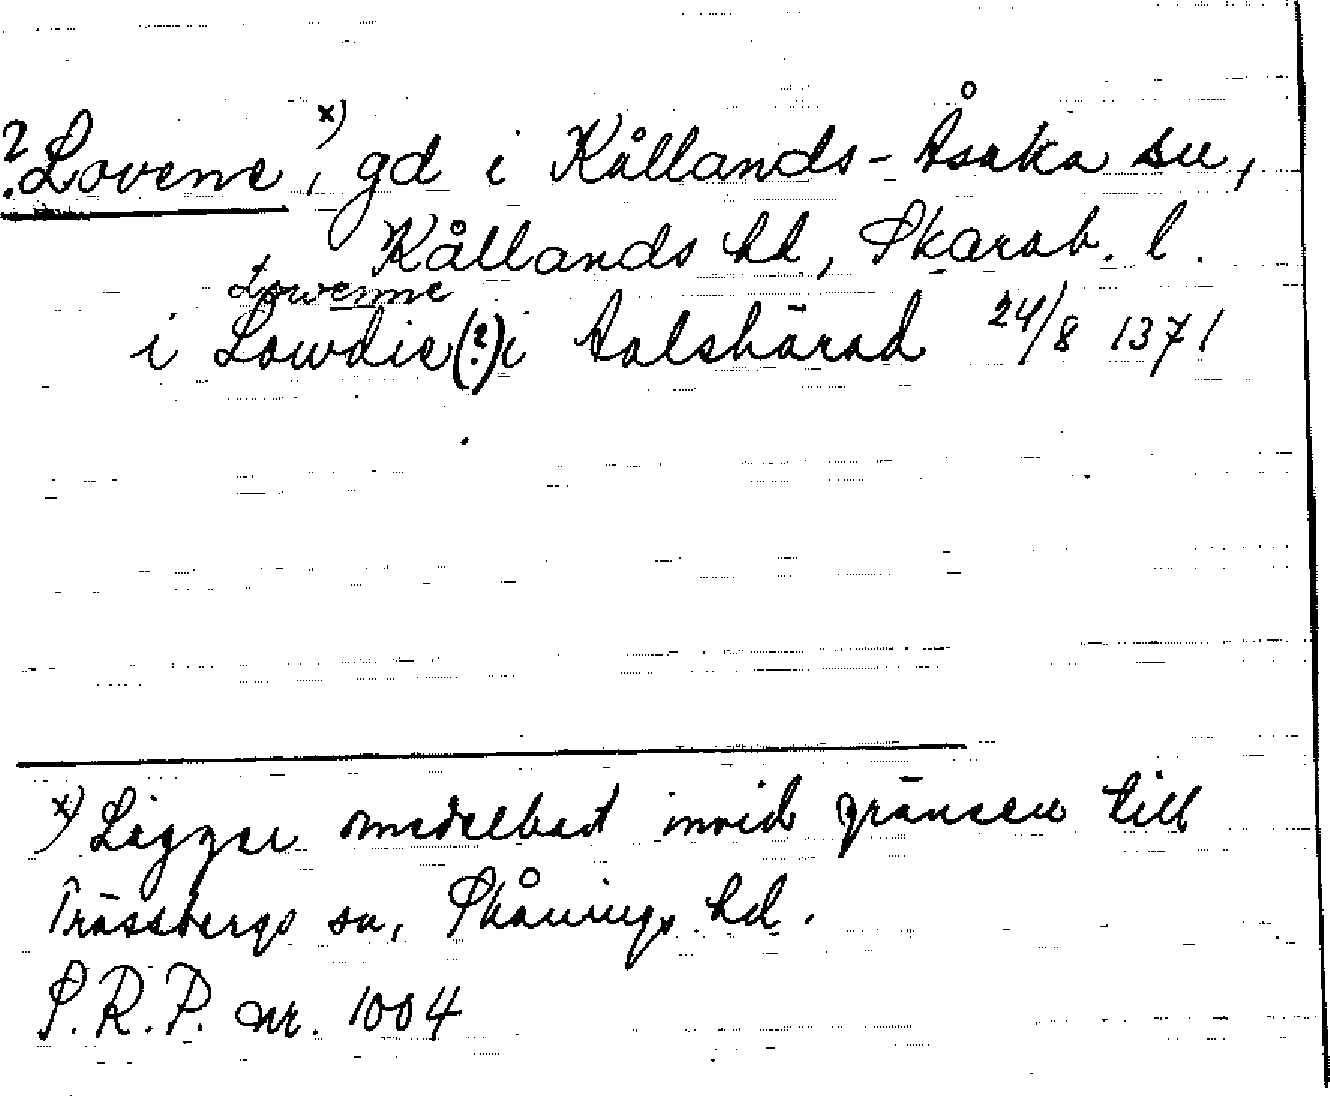 ?Lovene x), gd i Kållands-Åsaka sn,
Kållands hd, Skarab. l.
Lowenne
i Lowdie(?) i Aalshärad 24/8 1371
x) Ligger omedelbart invid gränsen till
Trässbergs sn, Skånings hd.
S.R.P. nr. 1004